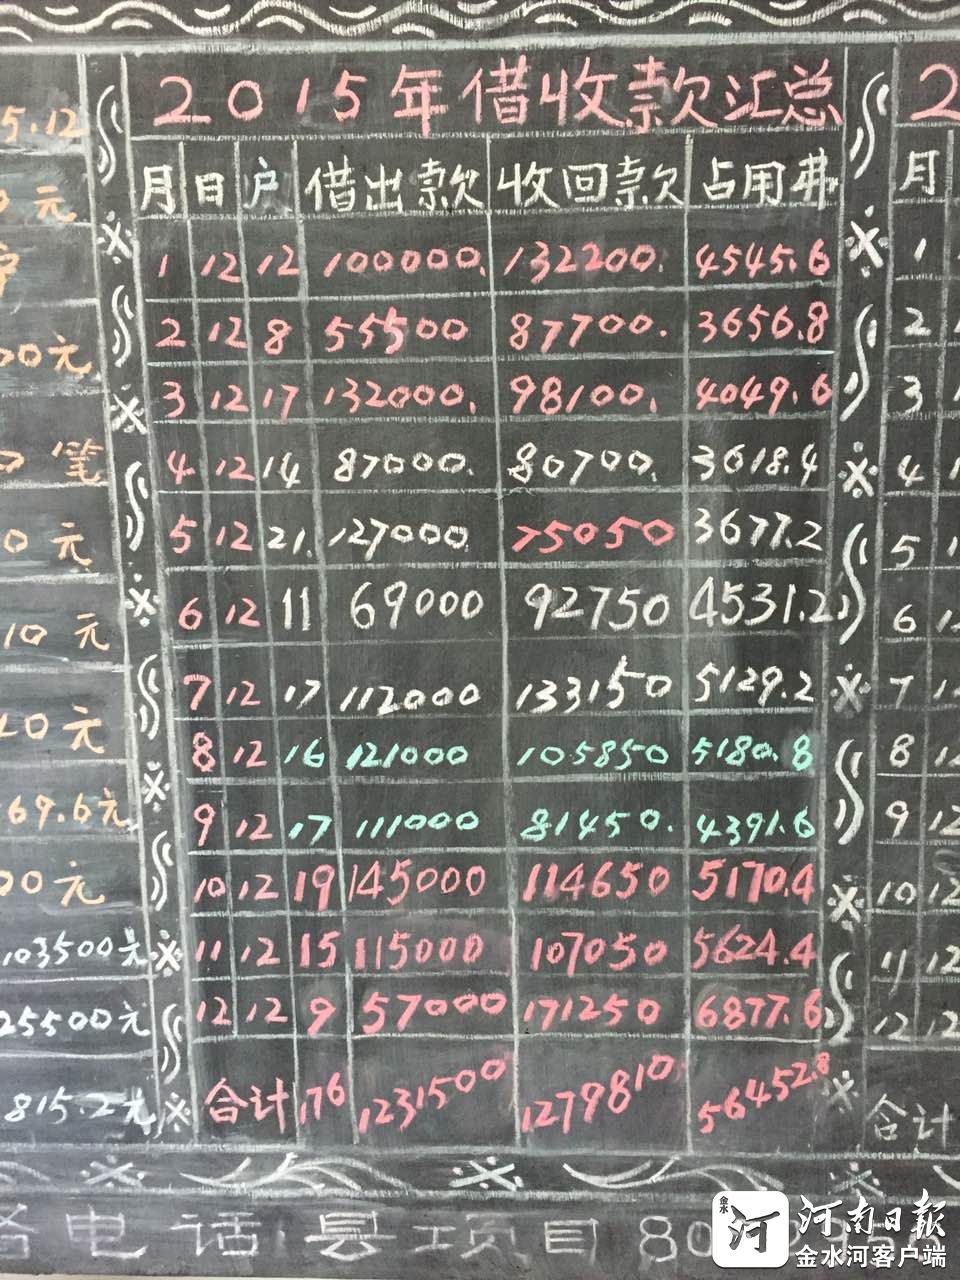 2015年借收款汇总 2
月 日 户 借出款 收回款 占用费 月
5.12
元
1 12 12 100000. 132200. 4545.6 1
2 12 8 55500 87700. 3656.8 2
00元
3 12 17 132000. 98100. 4049.6 3
笔
4 12 14 87000. 80700. 3618.4 4
0元
5 12 21. 127000. 75050 3677.2 5
6 12 11 69000 92750 4531.2 6
10元
7 12 17 112000 133150 5129.2 7
40元
8 12 16 121000 105850 5180.8 8
69.6元
9 12 17 111000 81450. 4391.6 9 12
00元
10 12 19 145000 114650 5170.4 10 12
103500元
11 12 15 115000 107050 5624.4 11 12
25500元
12 12 9 57000 171250 6877.6 12 12
815.2元
合计 176 1231500 1279810 56452.8 合计
电话县项目80
金水河
河南日报
金水河客户端